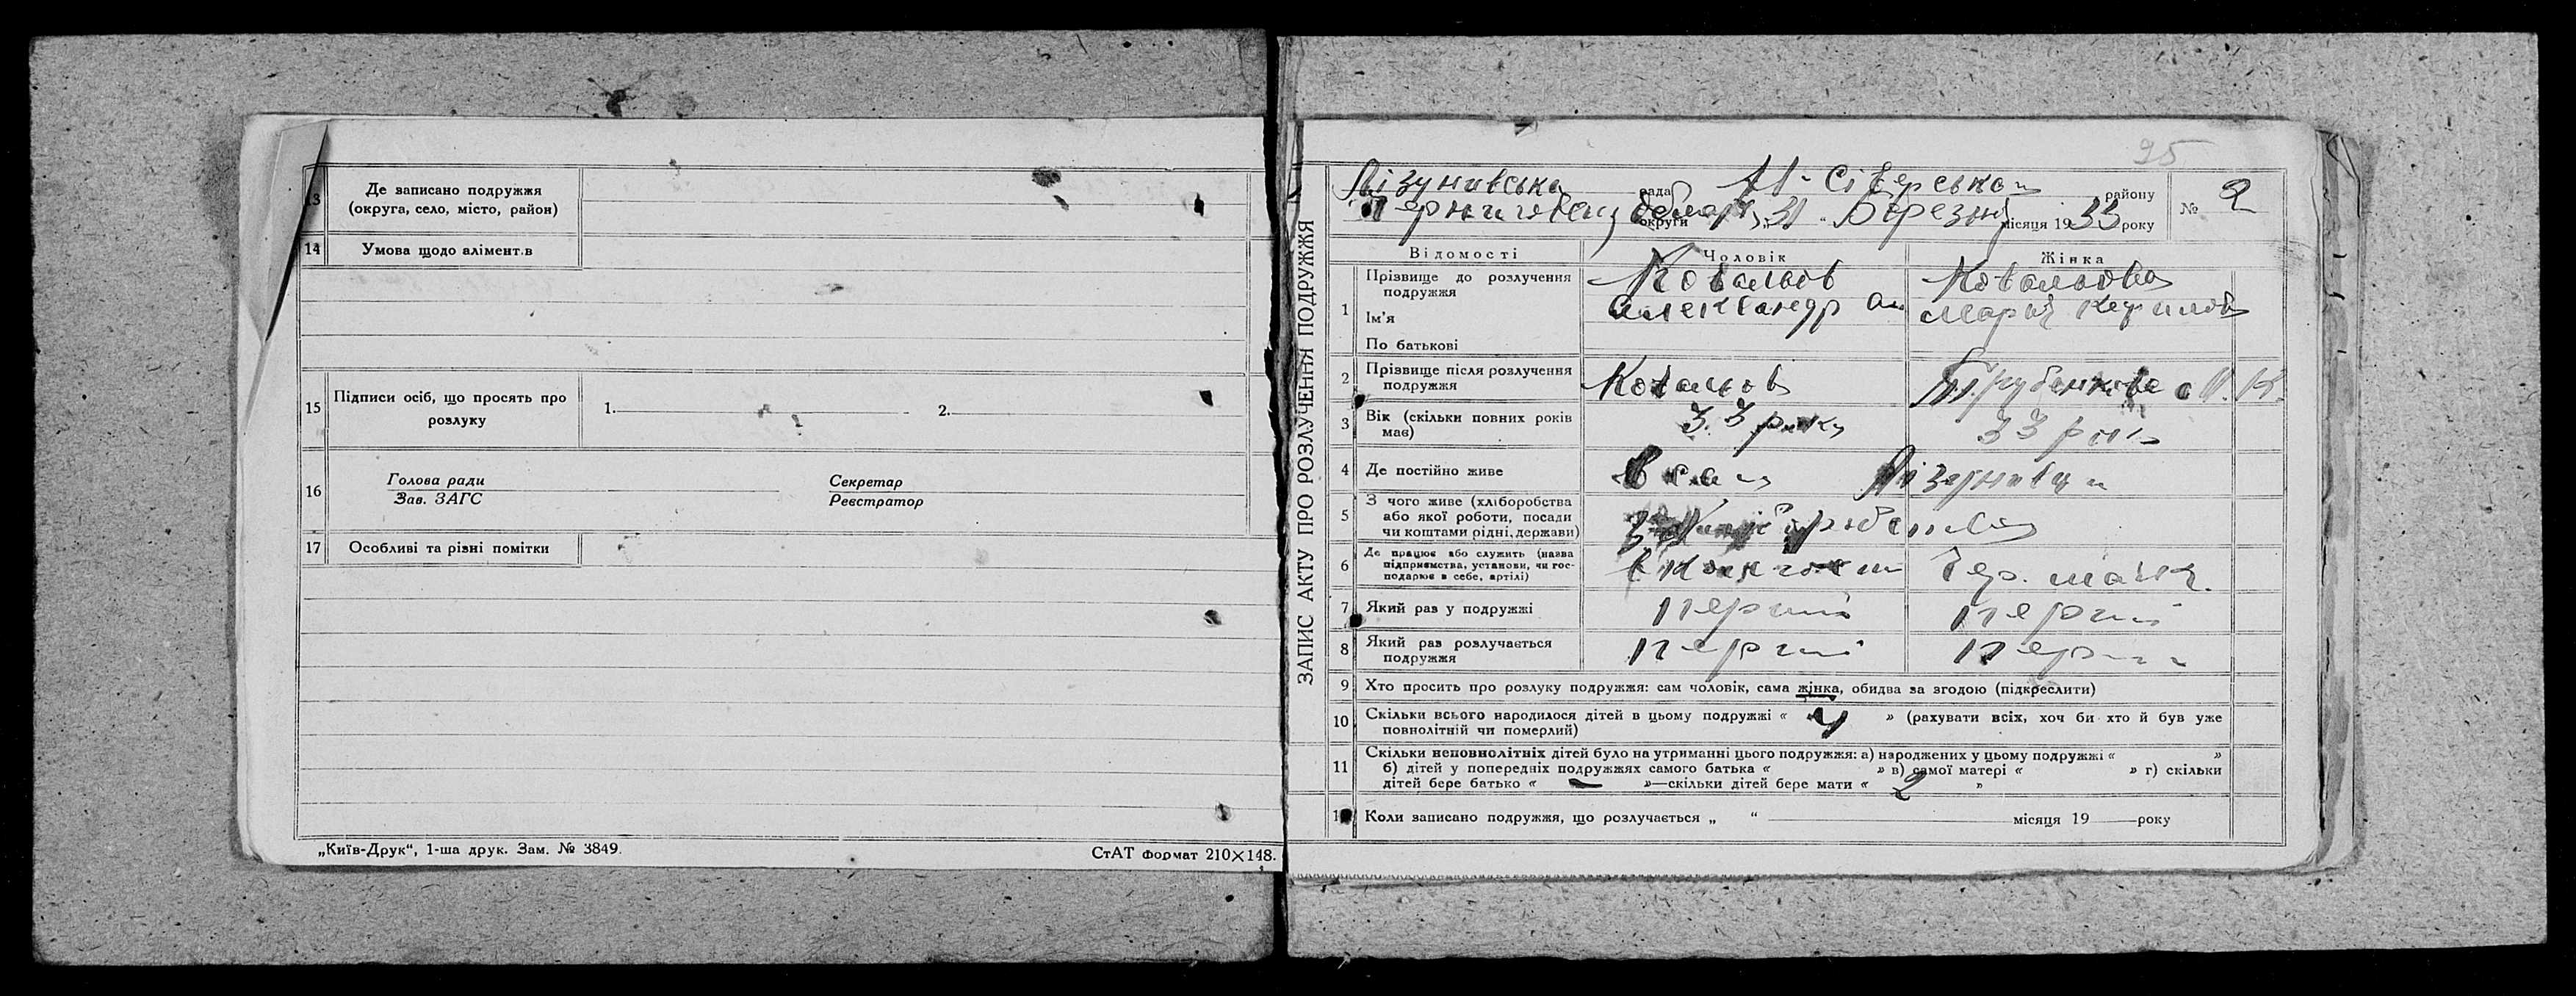 13 Де записано подружжя
(округа, село, місто, район)
14 Умова щодо алімент.в
15 Підписи осіб, що просять про
розлуку
1. 2.
16 Голова ради Секретар
Зав. ЗАГС Реєстратор
17 Особливі та різні помітки
„Київ-Друк“, 1-ша друк. Зам. № 3849.
СтАТ формат 210×148.
95
ЗАПИС АКТУ ПРО РОЗЛУЧЕННЯ ПОДРУЖЖЯ
Лізунівська рада Н-Сіверського району № 2
округи „31“ Березня місяця 1933 року
Відомості Чоловік Жінка
1 Прізвище до розлучення Ковальов Ковальова
подружжя
Ім'я Александр Марія Кирилов
По батькові
2 Прізвище після розлучення Ковальов
подружжя
3 Вік (скільки повних років 33 роки 33 роки
має)
4 Де постійно живе в селі Лізунівци
5 З чого живе (хліборобства
або якої роботи, посади
чи коштами рідні, держави)
6 Де працює або служить (назва
підприємства, установи, чи гос-
подарює в себе, артілі)
7 Який раз у подружжі перший перший
8 Який раз розлучається перший перший
подружжя
9 Хто просить про розлуку подружжя: сам чоловік, сама жінка, обидва за згодою (підкреслити)
10 Скільки всього народилося дітей в цьому подружжі « 4 » (рахувати всіх, хоч би хто й був уже
повнолітній чи померлий)
11 Скільки неповнолітніх дітей було на утриманні цього подружжя: а) народжених у цьому подружжі « »
б) дітей у попередніх подружжях самого батька « » в) самої матері « » г) скільки
дітей бере батько « — »—скільки дітей бере мати « 2 »
Коли записано подружжя, що розлучається „ “ місяця 19 року